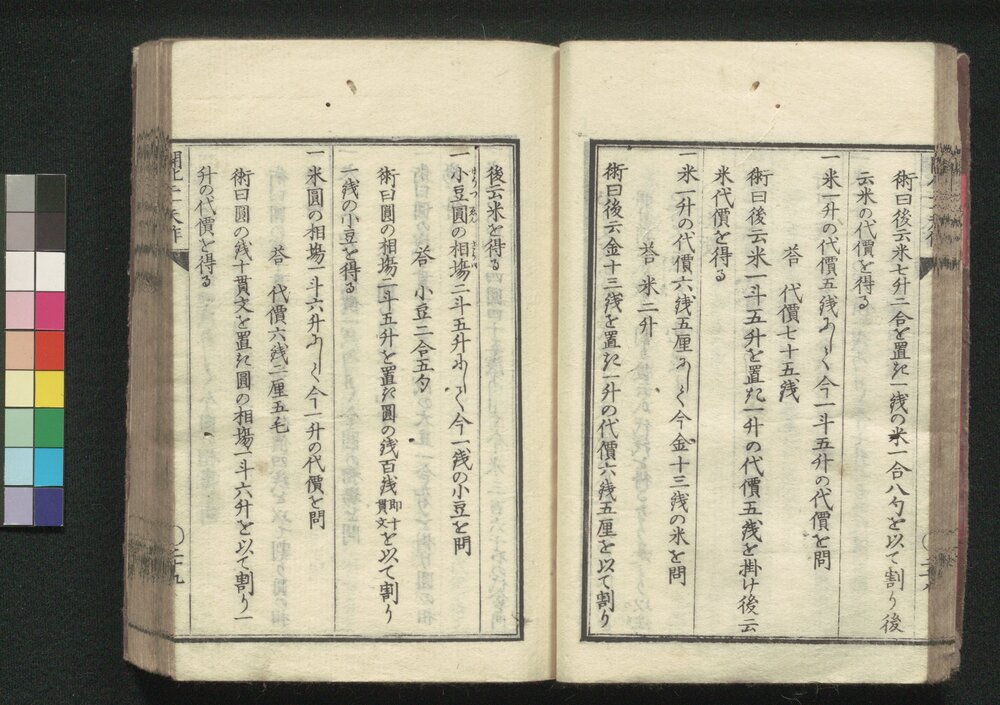 術曰後云米七升二合を置き一銭の米一合八勺を以て割り後
云米の代價を得る
一米一升の代價五銭あして今一斗五升の代價を問
荅 代價七十五銭
術曰後云米一斗五升を置き一升の代價五銭を掛け後云
米代價を得る
一米一升の代價六銭五厘あして今金十三銭の米を問
荅 米二升
術曰後云金十三銭を置き一升の代價六銭五厘を以て割り
後云米を得る
一小豆圓の相塲二斗五升あして今一銭の小豆を問
荅 小豆二合五勺
術曰圓の相塲二斗五升を置き圓の銭百銭即十貫文を以て割り
一銭の小豆を得る
一米圓の相塲一斗六升あして今一升の代價を問
荅 代價六銭二厘五毛
術曰圓の銭十貫文を置き圓の相塲一斗六升を以て割り一
升の代價を得る